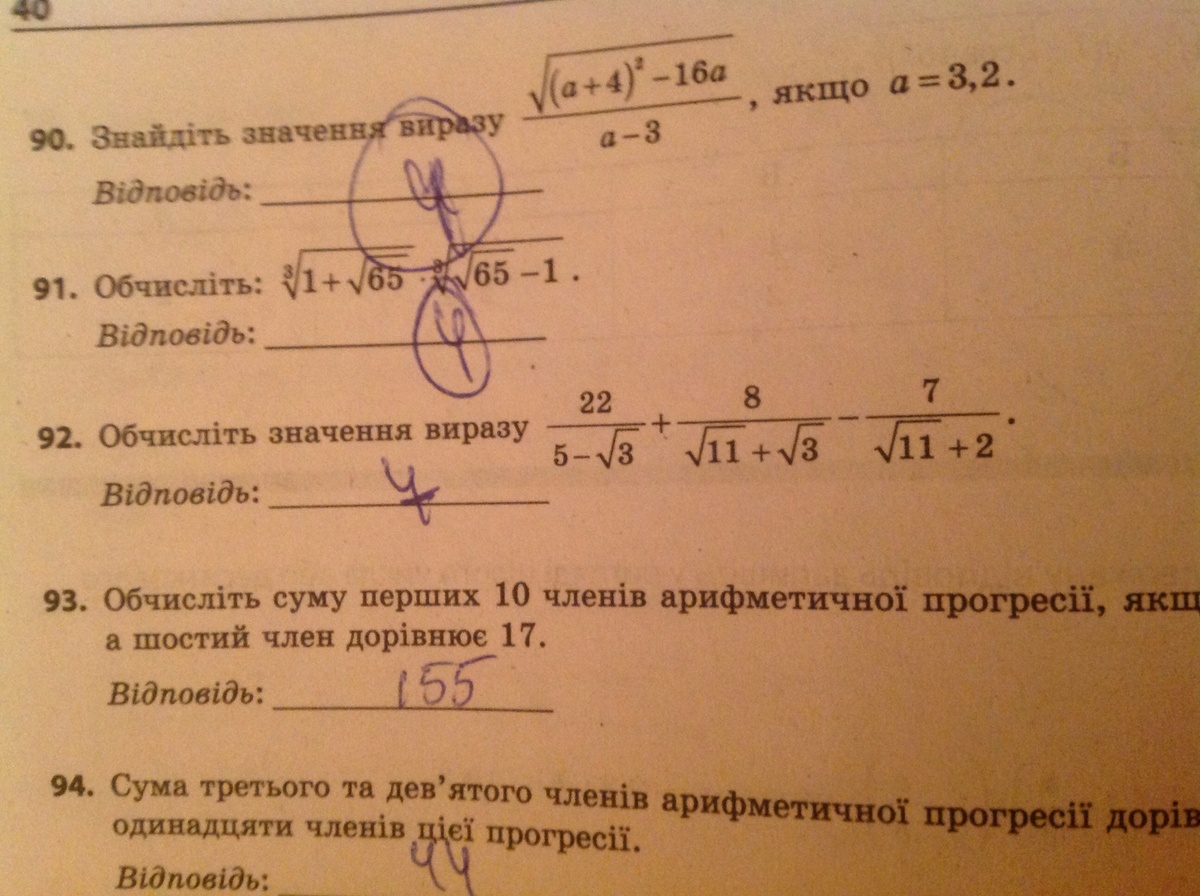 40
90. Знайдіть значення виразу √((a+4)² −16a) / (a−3), якщо a = 3,2.
Відповідь: 4
91. Обчисліть: ∛(1+√65) · ∛(√65 −1) .
Відповідь: 4
92. Обчисліть значення виразу 22/(5−√3) + 8/(√11 +√3) − 7/(√11 +2) .
Відповідь: 4
93. Обчисліть суму перших 10 членів арифметичної прогресії, якщ
а шостий член дорівнює 17.
Відповідь: 155
94. Сума третього та дев’ятого членів арифметичної прогресії дорів
одинадцяти членів цієї прогресії.
Відповідь: 44